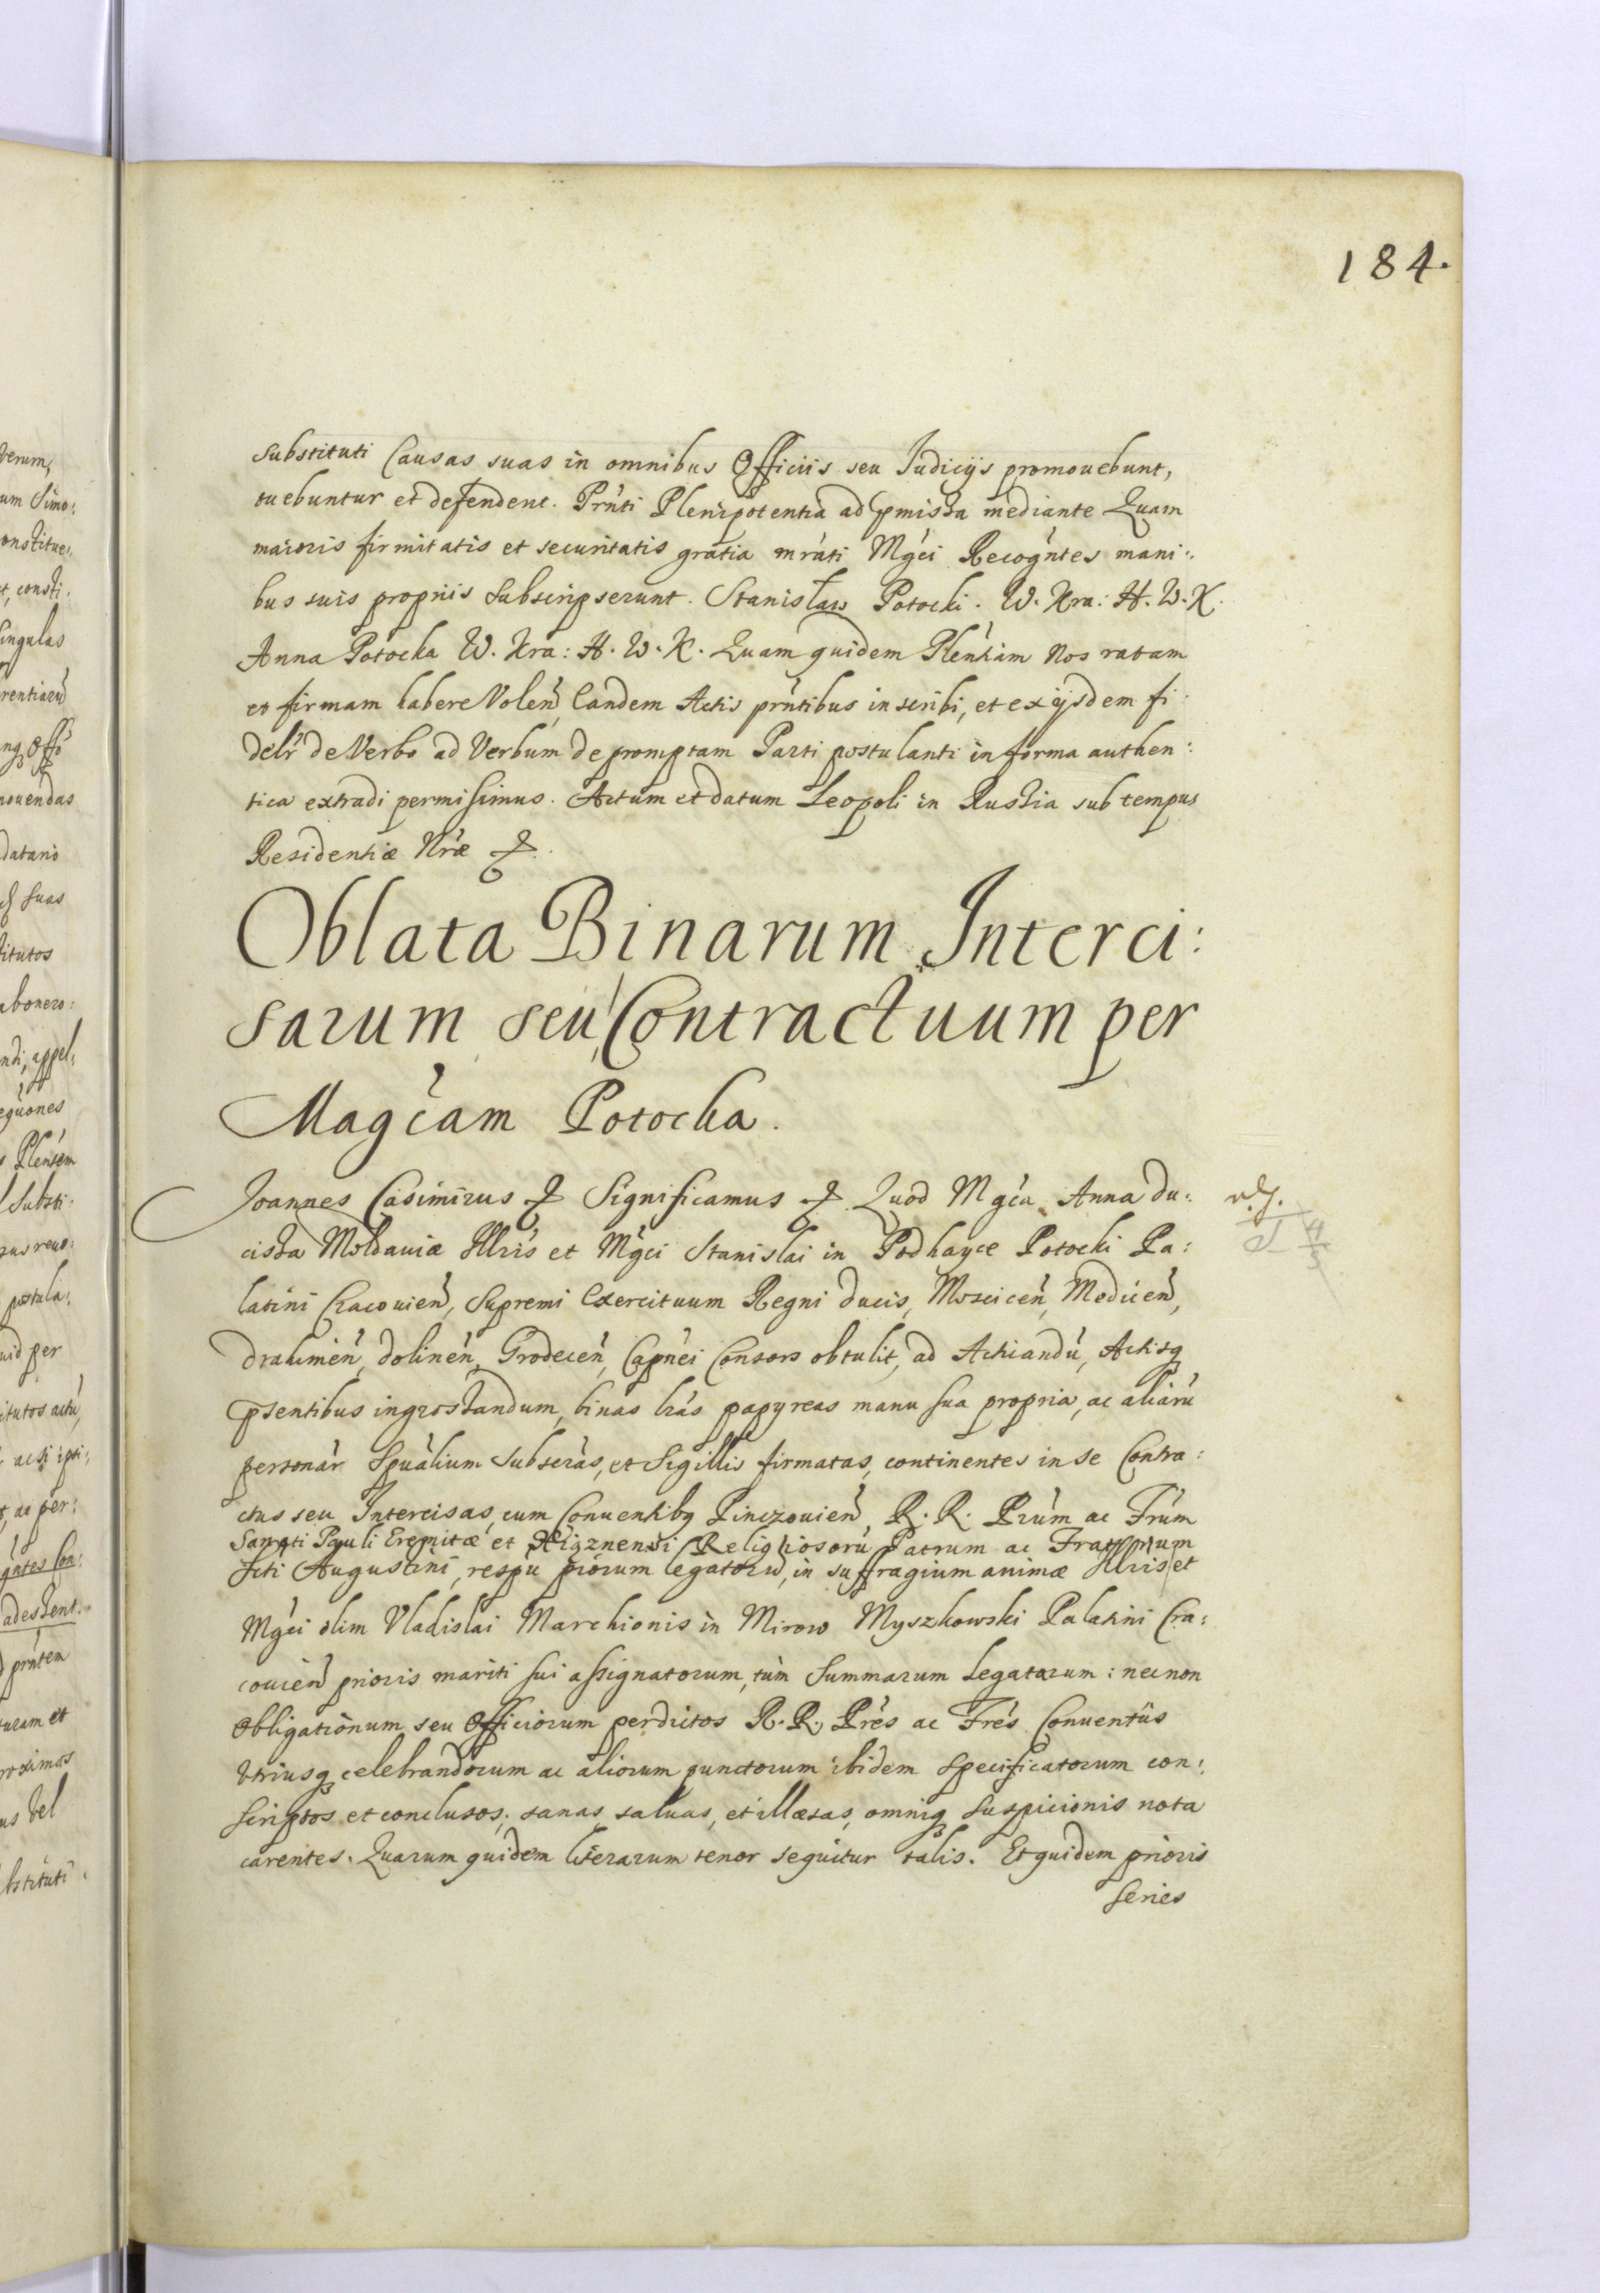 184.
substituti Causas suas in omnibus Officiis seu Iudicijs promouebunt,
tuebuntur et defendent. Prńti Plenipotentia ad pmissa mediante Quam
maioris firmitatis et securitatis gratia mráti Mgći Recogńtes mani:
bus suis propriis subscripserunt. Stanisław Potocki. W. Kra: H. W. K.
Anna Potocka W. Kra: H. W. K. Quam quidem Pleńtiam Nos ratam
et firmam habere Voleń, Eandem Actis prńtibus inscribi, et ex ijsdem fi:
delŕ de Verbo ad Verbum depromptam Parti postulanti in forma authen:
tica extradi permisimus. Actum et datum Leopoli in Russia sub tempus
Residentiæ Nræ
Oblata Binarum Interci:
sarum seu Contractuum per
Magćam Potocka.
Joannes Casimirus Significamus Quod Mgća Anna du:
cissa Moldauiæ Illris et Mgći Stanislai in Podhayce Potocki Pa:
latini Cracouień, Supremi Exercituum Regni Ducis, Mosciceń, Mediceń,
drahimeń, dolineń, Grodeceń, Capńei Consors obtulit, ad Actiandú, Actisq
psentibus ingrossandum, binas lras papyreas manu sua propria, ac aliarú
personaŕ Spuálium subscras, et Sigillis firmatas, continentes in se Contra:
ctus seu Intercisas, cum Conuentibq Pinczouień, R. R. Prum ac Frum
Sancti Pauli Eremitæ et Xiąznensi Religiosorú Patrum ac Fratrum
Scti Augustini, respú piorum legatorú, in suffragium animæ Illris et
Mgći olim Vladislai Marchionis in Mirow Myszkowski Palatini Cra:
couień prioris mariti sui assignatorum, tum Summarum Legatarum: necnon
Obligationum seu Officiorum perdictos R. R. Pres ac Fres Conuentus
Vtriusq celebrandorum ac aliorum punctorum ibidem specificatorum con:
scriptos et conclusos; sanas, saluas, et illæsas, omniq suspicionis nota
carentes. Quarum quidem literarum tenor sequitur talis. Et quidem prioris
series